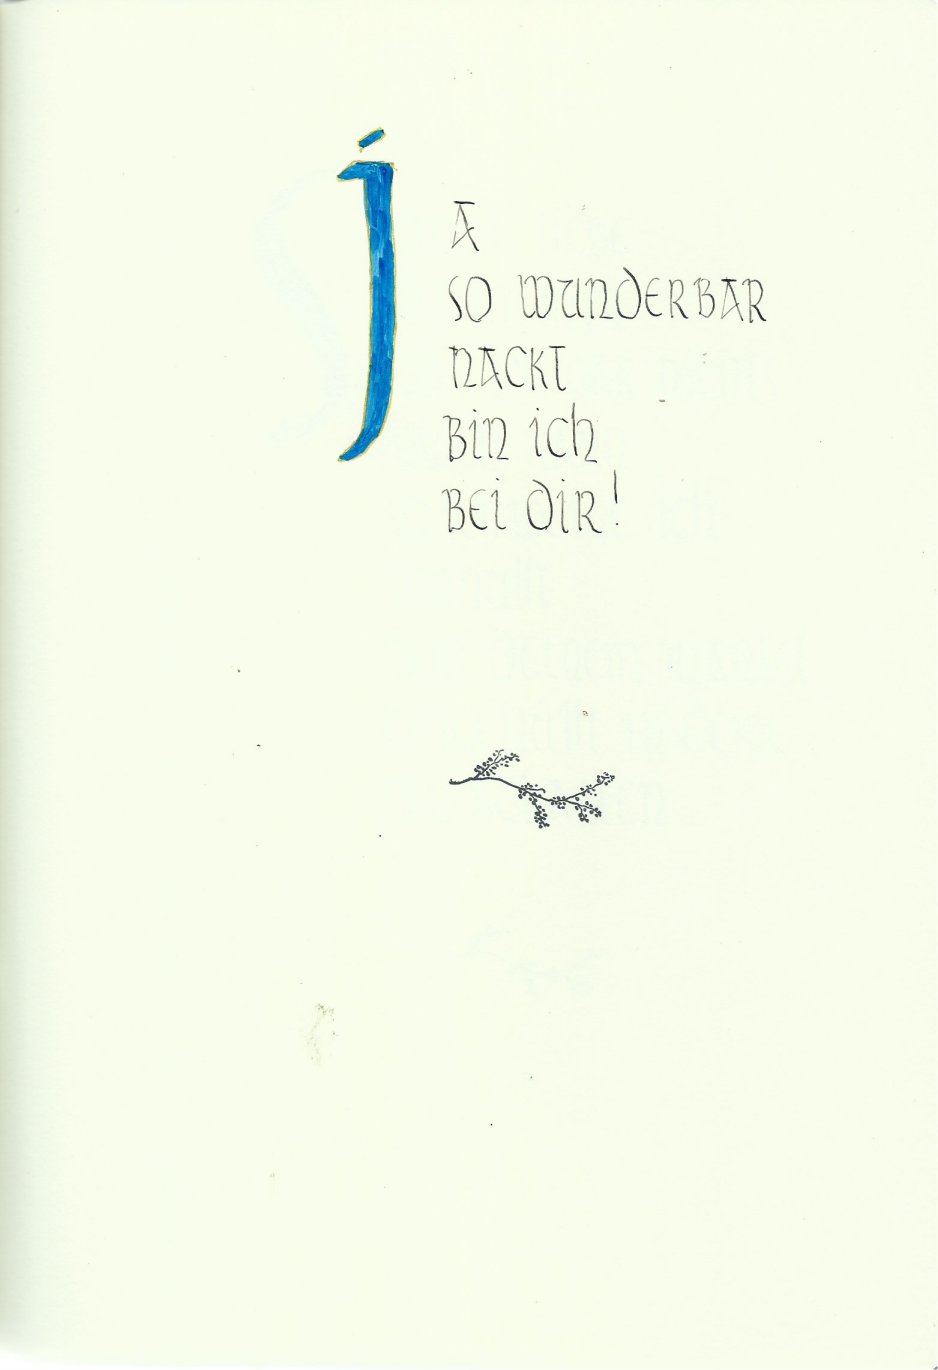 jA
SO WUNDERBAR
NACKT
BIN ICH
BEI DIR!